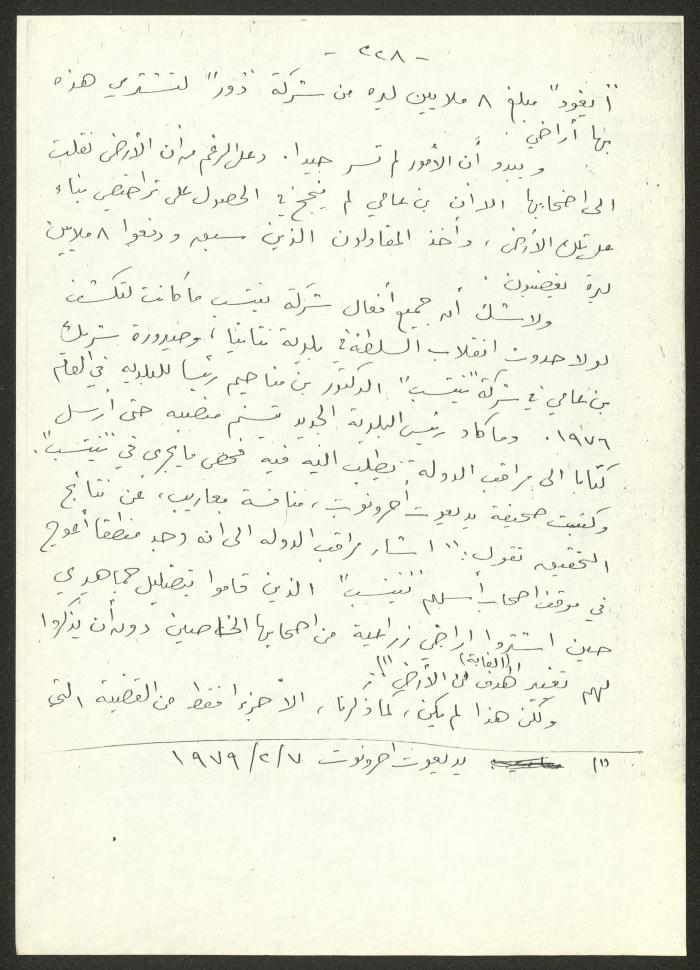 - ٢٢٨ -
"أيغود" مبلغ ٨ ملايين ليره من شركة "دور" لتشتري هذه
بها أراضي.
ويبدو أن الأمور لم تسر جيدا. وعلى الرغم من أن الأرض نقلت
الى اصحابها الا ان بن عامي لم ينجح في الحصول على تراخيص بناء
على تلك الأرض، وأخذ المقاولون الذين سبق ودفعوا ٨ ملايين
ليرة يغضبون.
ولا شك أن جميع أفعال شركة نيتسب ما كانت لتكشف
لولا حدوث انقلاب السلطة في بلدية نتانيا، وصيرورة شريك
بن عامي في شركة "نيتسب" الدكتور بن مناحيم رئيسا للبلدية في العام
١٩٧٦. وما كاد رئيس البلدية الجديد يتسنم منصبه حتى أرسل
كتابا الى مراقب الدولة يطلب اليه فيه فحص ما يجرى في "نيتسب".
وكتبت صحيفة يديعوت أحرونوت، منافسة معاريب، عن نتائج
التحقيق تقول: "اشار مراقب الدوله الى انه وجد منطقا أعوج
في موقف اصحاب أسهم "نيتسب" الذين قاموا بتضليل جماهيري
حين اشتروا اراضي زراعية من اصحابها الخاصين دون أن يذكروا
لهم تغيير الهدف (الغاية) من الأرض"(١).
ولكن هذا لم يكن، كما ذكرنا، الا جزءا فقط من القضية التي
(١) يديعوت احرونوت ١٩٧٩/٢/٧